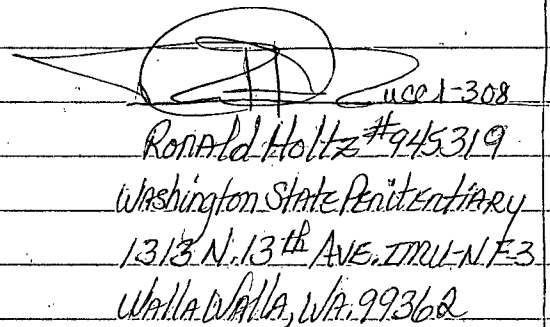 ucc 1-308
Ronald Holtz #945319
Washington State Penitentiary
1313 N. 13th AVE. IMU-N F-3
WALLA WALLA, WA. 99362